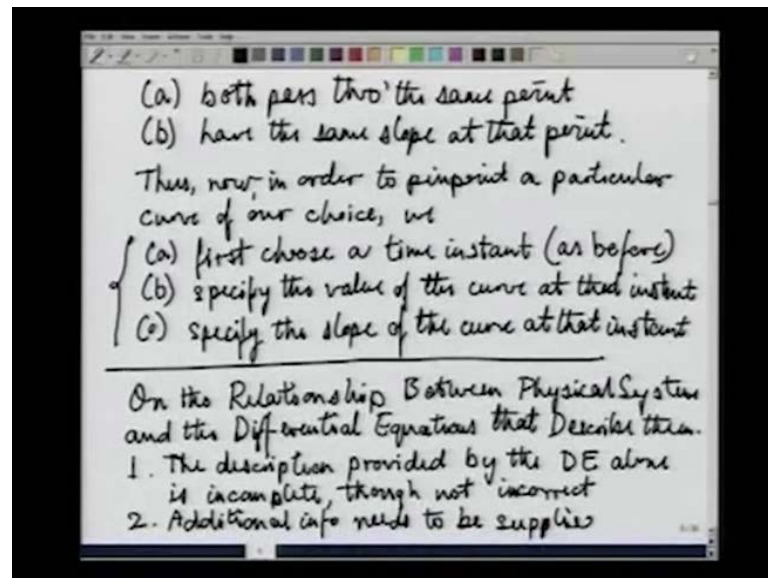 (a) both pass thro' the same point
(b) have the same slope at that point.
Thus, now, in order to pinpoint a particular
curve of our choice, we
(a) first choose a time instant (as before)
(b) specify the value of the curve at that instant
(c) specify the slope of the curve at that instant
On the Relationship Between Physical System
and the Differential Equations that Describe them.
1. The description provided by the DE alone
is incomplete, though not incorrect
2. Additional info needs to be supplie